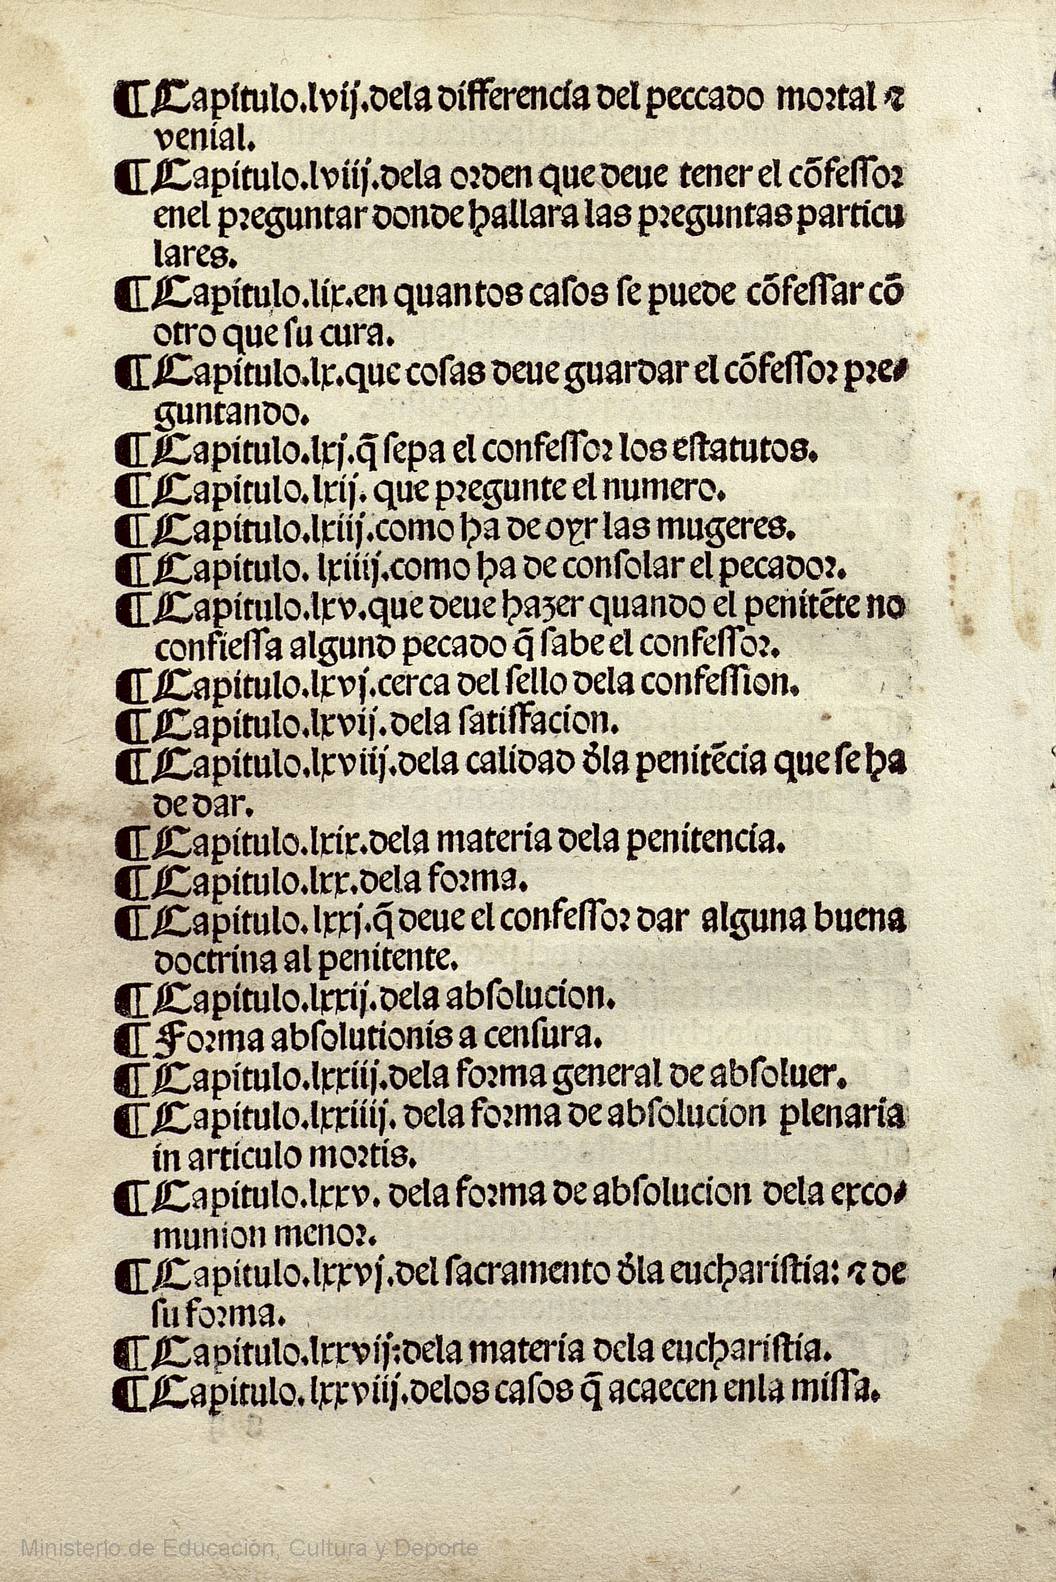 ¶Capitulo.lvij.dela differencia del peccado mortal ⁊
venial.
¶Capitulo.lviij.dela orden que deue tener el cõfessor
enel preguntar donde hallara las preguntas particu
lares.
¶Capitulo.lix.en quantos casos se puede cõfessar cõ
otro que su cura.
¶Capitulo.lx.que cosas deue guardar el cõfessor pre-
guntando.
¶Capitulo.lxj.q̃ sepa el confessor los estatutos.
¶Capitulo.lxij. que pregunte el numero.
¶Capitulo.lxiij.como ha de oyr las mugeres.
¶Capitulo. lxiiij.como ha de consolar el pecador.
¶Capitulo.lxv.que deue hazer quando el penitẽte no
confiessa algund pecado q̃ sabe el confessor.
¶Capitulo.lxvj.cerca del sello dela confession.
¶Capitulo.lxvij.dela satisfacion.
¶Capitulo.lxviij.dela calidad d̃la penitẽcia que se ha
de dar.
¶Capitulo.lxix.dela materia dela penitencia.
¶Capitulo.lxx.dela forma.
¶Capitulo.lxxj.q̃ deue el confessor dar alguna buena
doctrina al penitente.
¶Capitulo.lxxij.dela absolucion.
¶Forma absolutionis a censura.
¶Capitulo.lxxiij.dela forma general de absoluer.
¶Capitulo.lxxiiij. dela forma de absolucion plenaria
in articulo mortis.
¶Capitulo.lxxv. dela forma de absolucion dela exco-
munion menor.
¶Capitulo.lxxvj.del sacramento d̃la eucharistia: ⁊ de
su forma.
¶Capitulo.lxxvij:dela materia dela eucharistia.
¶Capitulo.lxxviij.delos casos q̃ acaecen enla missa.
Ministerio de Educación, Cultura y Deporte